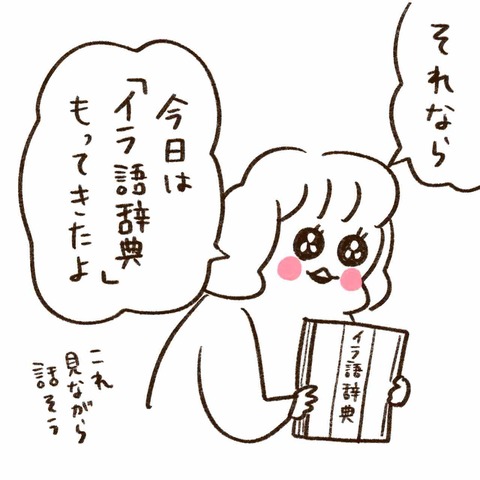 それなら
今日は
「イラ語辞典」
もってきたよ
イラ語辞典
これ
見ながら
話そう